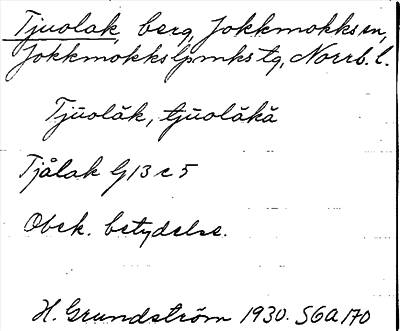 Tjuolak, berg, Jokkmokks sn,
Jokkmokks lpmks tg, Norrb. l.
Tjūolăk, tjūolăkă
Tjålak G 13 c 5
Obek. betydelse.
H. Grundström 1930. SGA 170